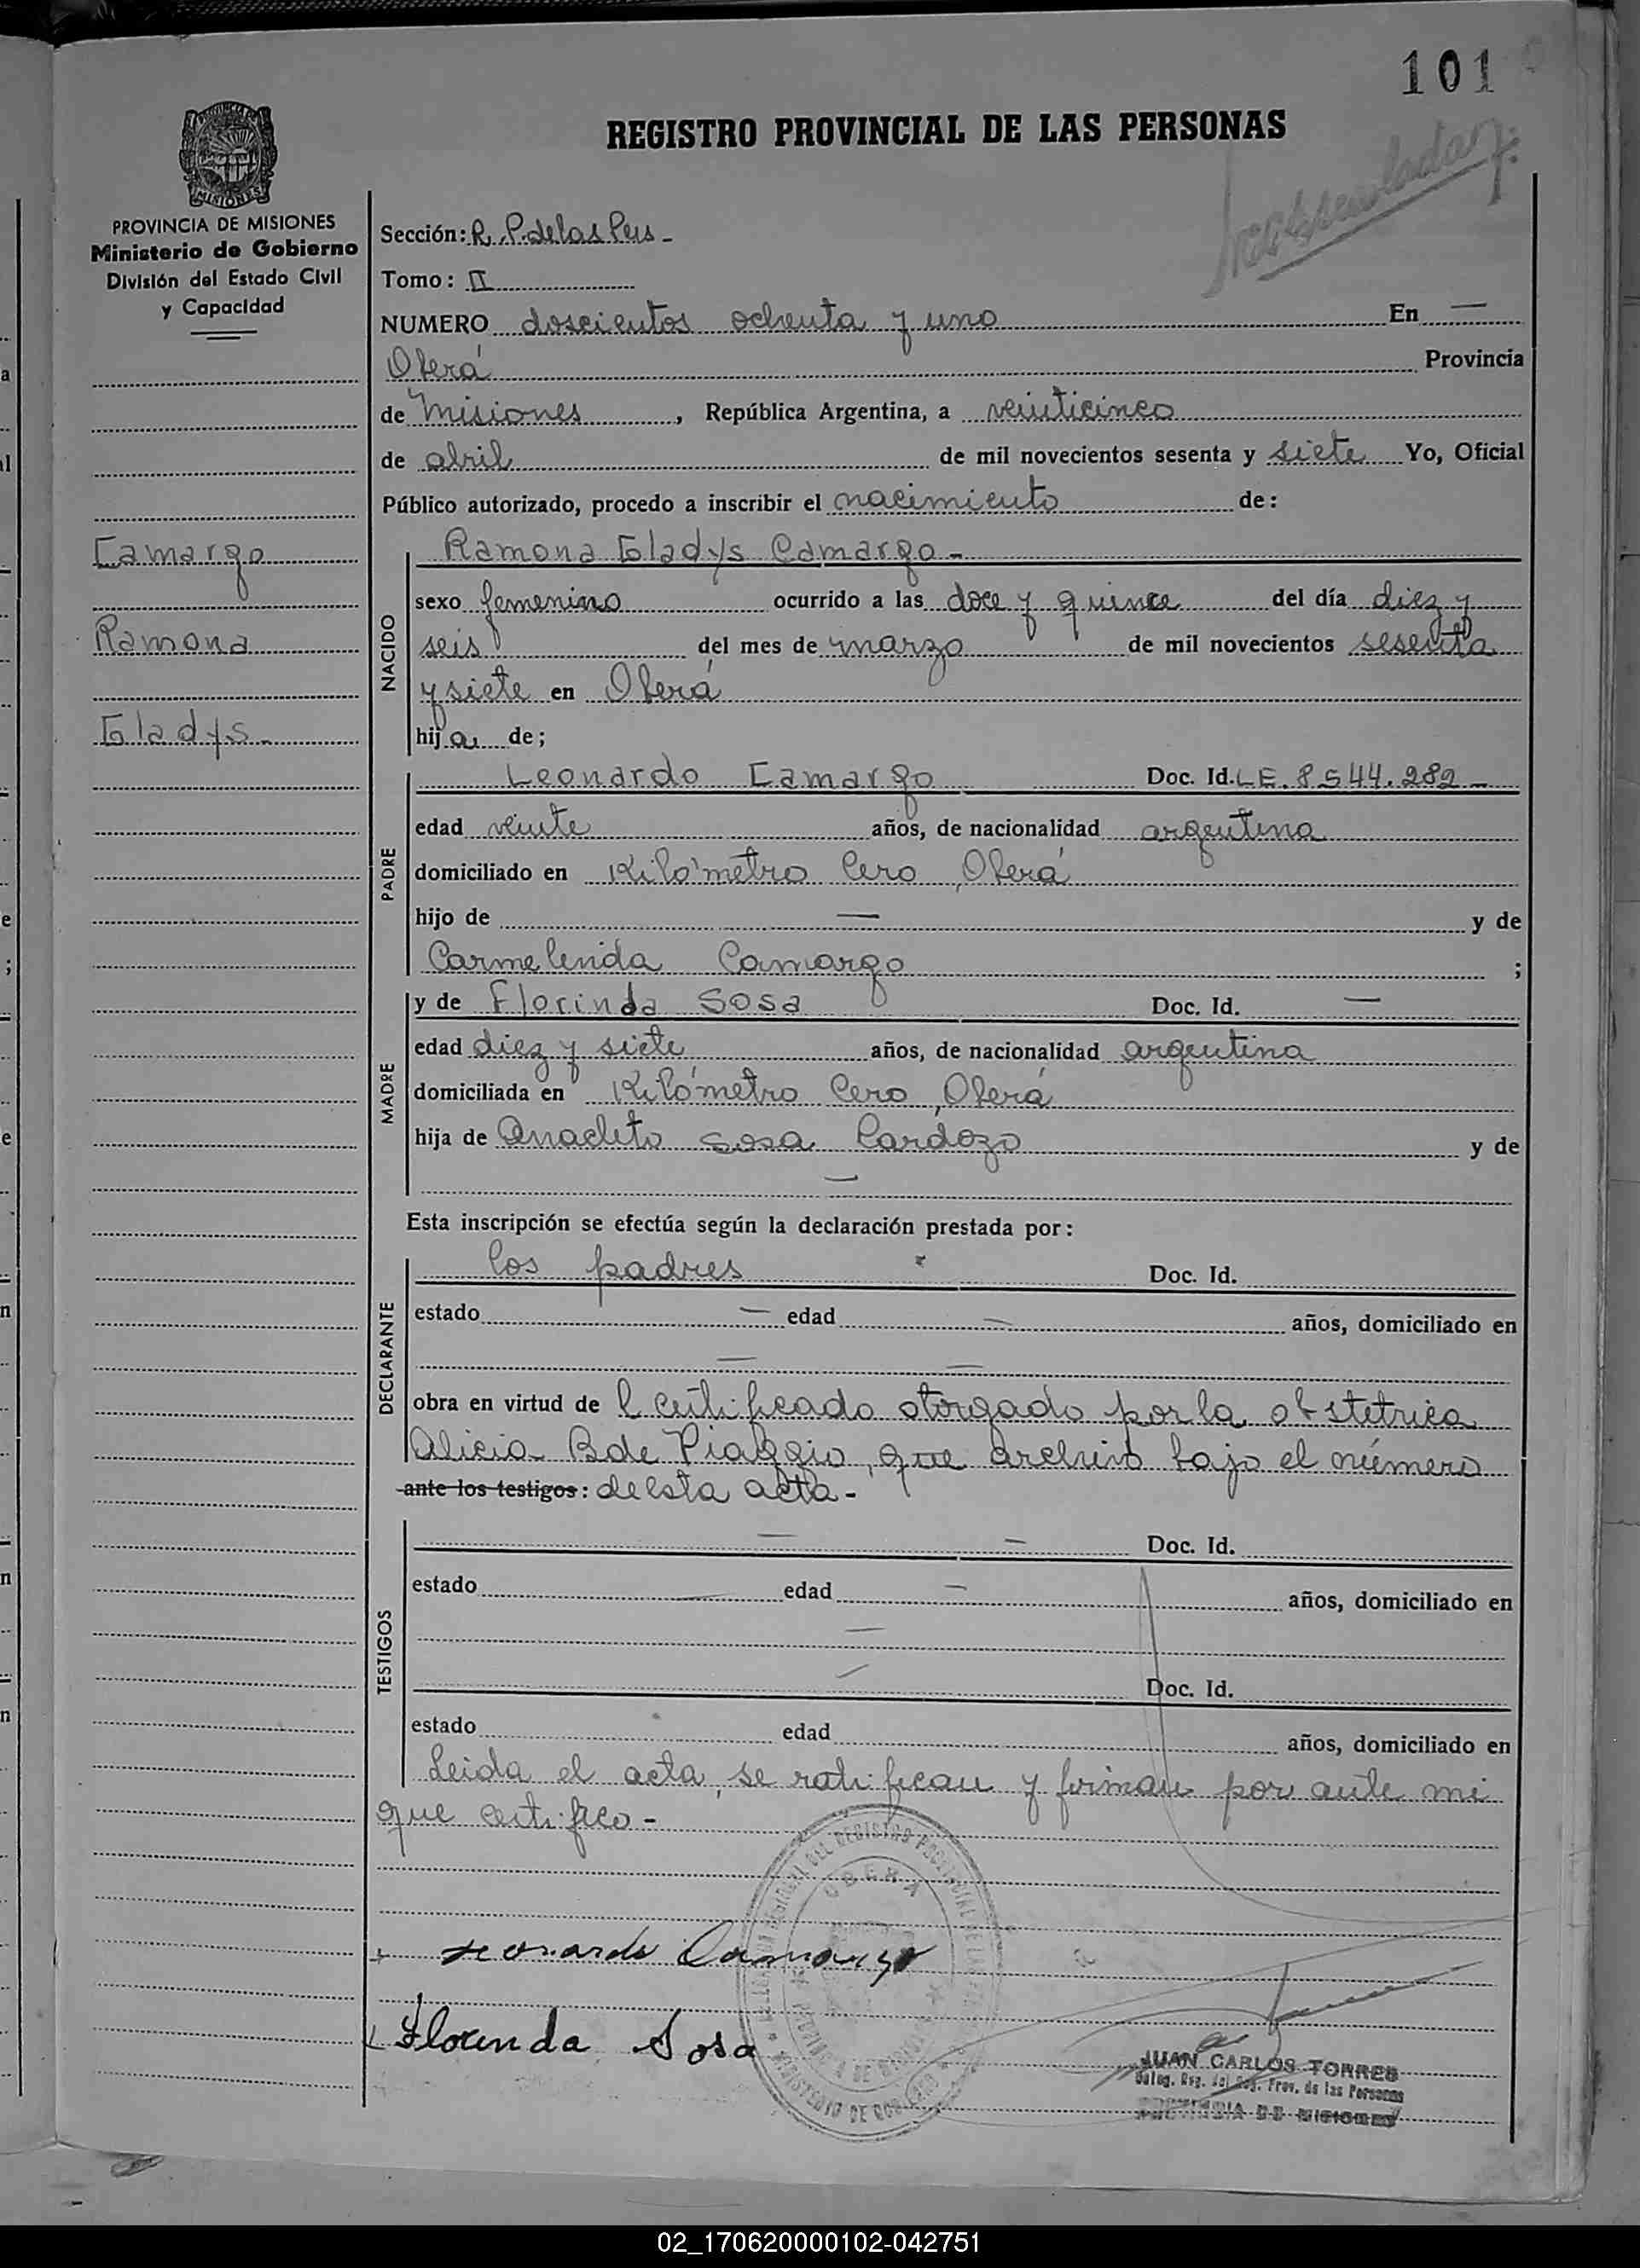 101
REGISTRO PROVINCIAL DE LAS PERSONAS
PROVINCIA DE MISIONES
Ministerio de Gobierno
División del Estado Civil
y Capacidad
Camargo
Ramona
Gladys.
Sección: R. P. de las Pers -
Tomo: II
NUMERO doscientos ochenta y uno En —
Oberá Provincia
de Misiones, República Argentina, a veinticinco
de abril de mil novecientos sesenta y siete Yo, Oficial
Público autorizado, procedo a inscribir el nacimiento de:
NACIDO
Ramona Gladys Camargo -
sexo femenino ocurrido a las doce y quince del día diez y
seis del mes de marzo de mil novecientos sesenta
y siete en Oberá
hija de;
PADRE
Leonardo Camargo Doc. Id. LE. 8544.282 -
edad veinte años, de nacionalidad argentina
domiciliado en Kilómetro Cero, Oberá
hijo de — y de
Carmelinda Camargo ;
MADRE
y de Florinda Sosa Doc. Id. —
edad diez y siete años, de nacionalidad argentina
domiciliada en Kilómetro Cero, Oberá
hija de Anacleto Sosa Cardozo y de
—
Esta inscripción se efectúa según la declaración prestada por:
DECLARANTE
los padres Doc. Id.
estado — edad — años, domiciliado en
— —
obra en virtud de l certificado otorgado por la obstetrica
Alicia B de Piaggio, que archivo bajo el número
ante los testigos: de esta acta -
TESTIGOS
— — Doc. Id.
estado — edad — años, domiciliado en
—
— Doc. Id.
estado edad años, domiciliado en
Leida el acta, se ratifican y firman por ante mi
que certifico -
OBERA
Leonardo Camargo
Florinda Sosa
JUAN CARLOS TORRES
Deleg. Reg. del Reg. Prov. de las Personas
PROVINCIA DE MISIONES
02_170620000102-042751